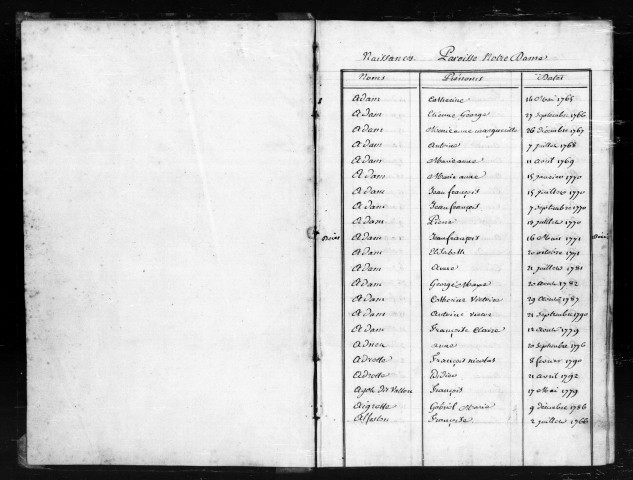 Naissances Paroisse Notre Dame
Noms Prénoms Dates
Adam Catherine 14 Mai 1765
Adam Etienne George 27 Septembre 1766
Adam marguerite 26 Décembre 1767
Adam Antoine 7 juillet 1768
Adam Marie anne 11 avril 1769
Adam Marie anne 15 janvier 1770
Adam Jean françois 15 juillet 1770
Adam Jean françois 7 Septembre 1770
Adam Pierre 19 juillet 1770
Adam Jean françois 16 Mai 1771
Adam Elisabeth 20 octobre 1771
Adam Anne 21 juillet 1781
Adam George 20 Août 1782
Adam Catherine Victoire 29 Août 1787
Adam Antoine Victor 21 Septembre 1790
Adam Françoise Claire 12 Août 1779
Adnen anne 20 Septembre 1776
Adrotte François nicolas 8 février 1790
Adrotte Didier 21 avril 1792
François 17 Mai 1779
Aigrette Gabriel Marie 9 décembre 1786
Françoise 2 juillet 1766